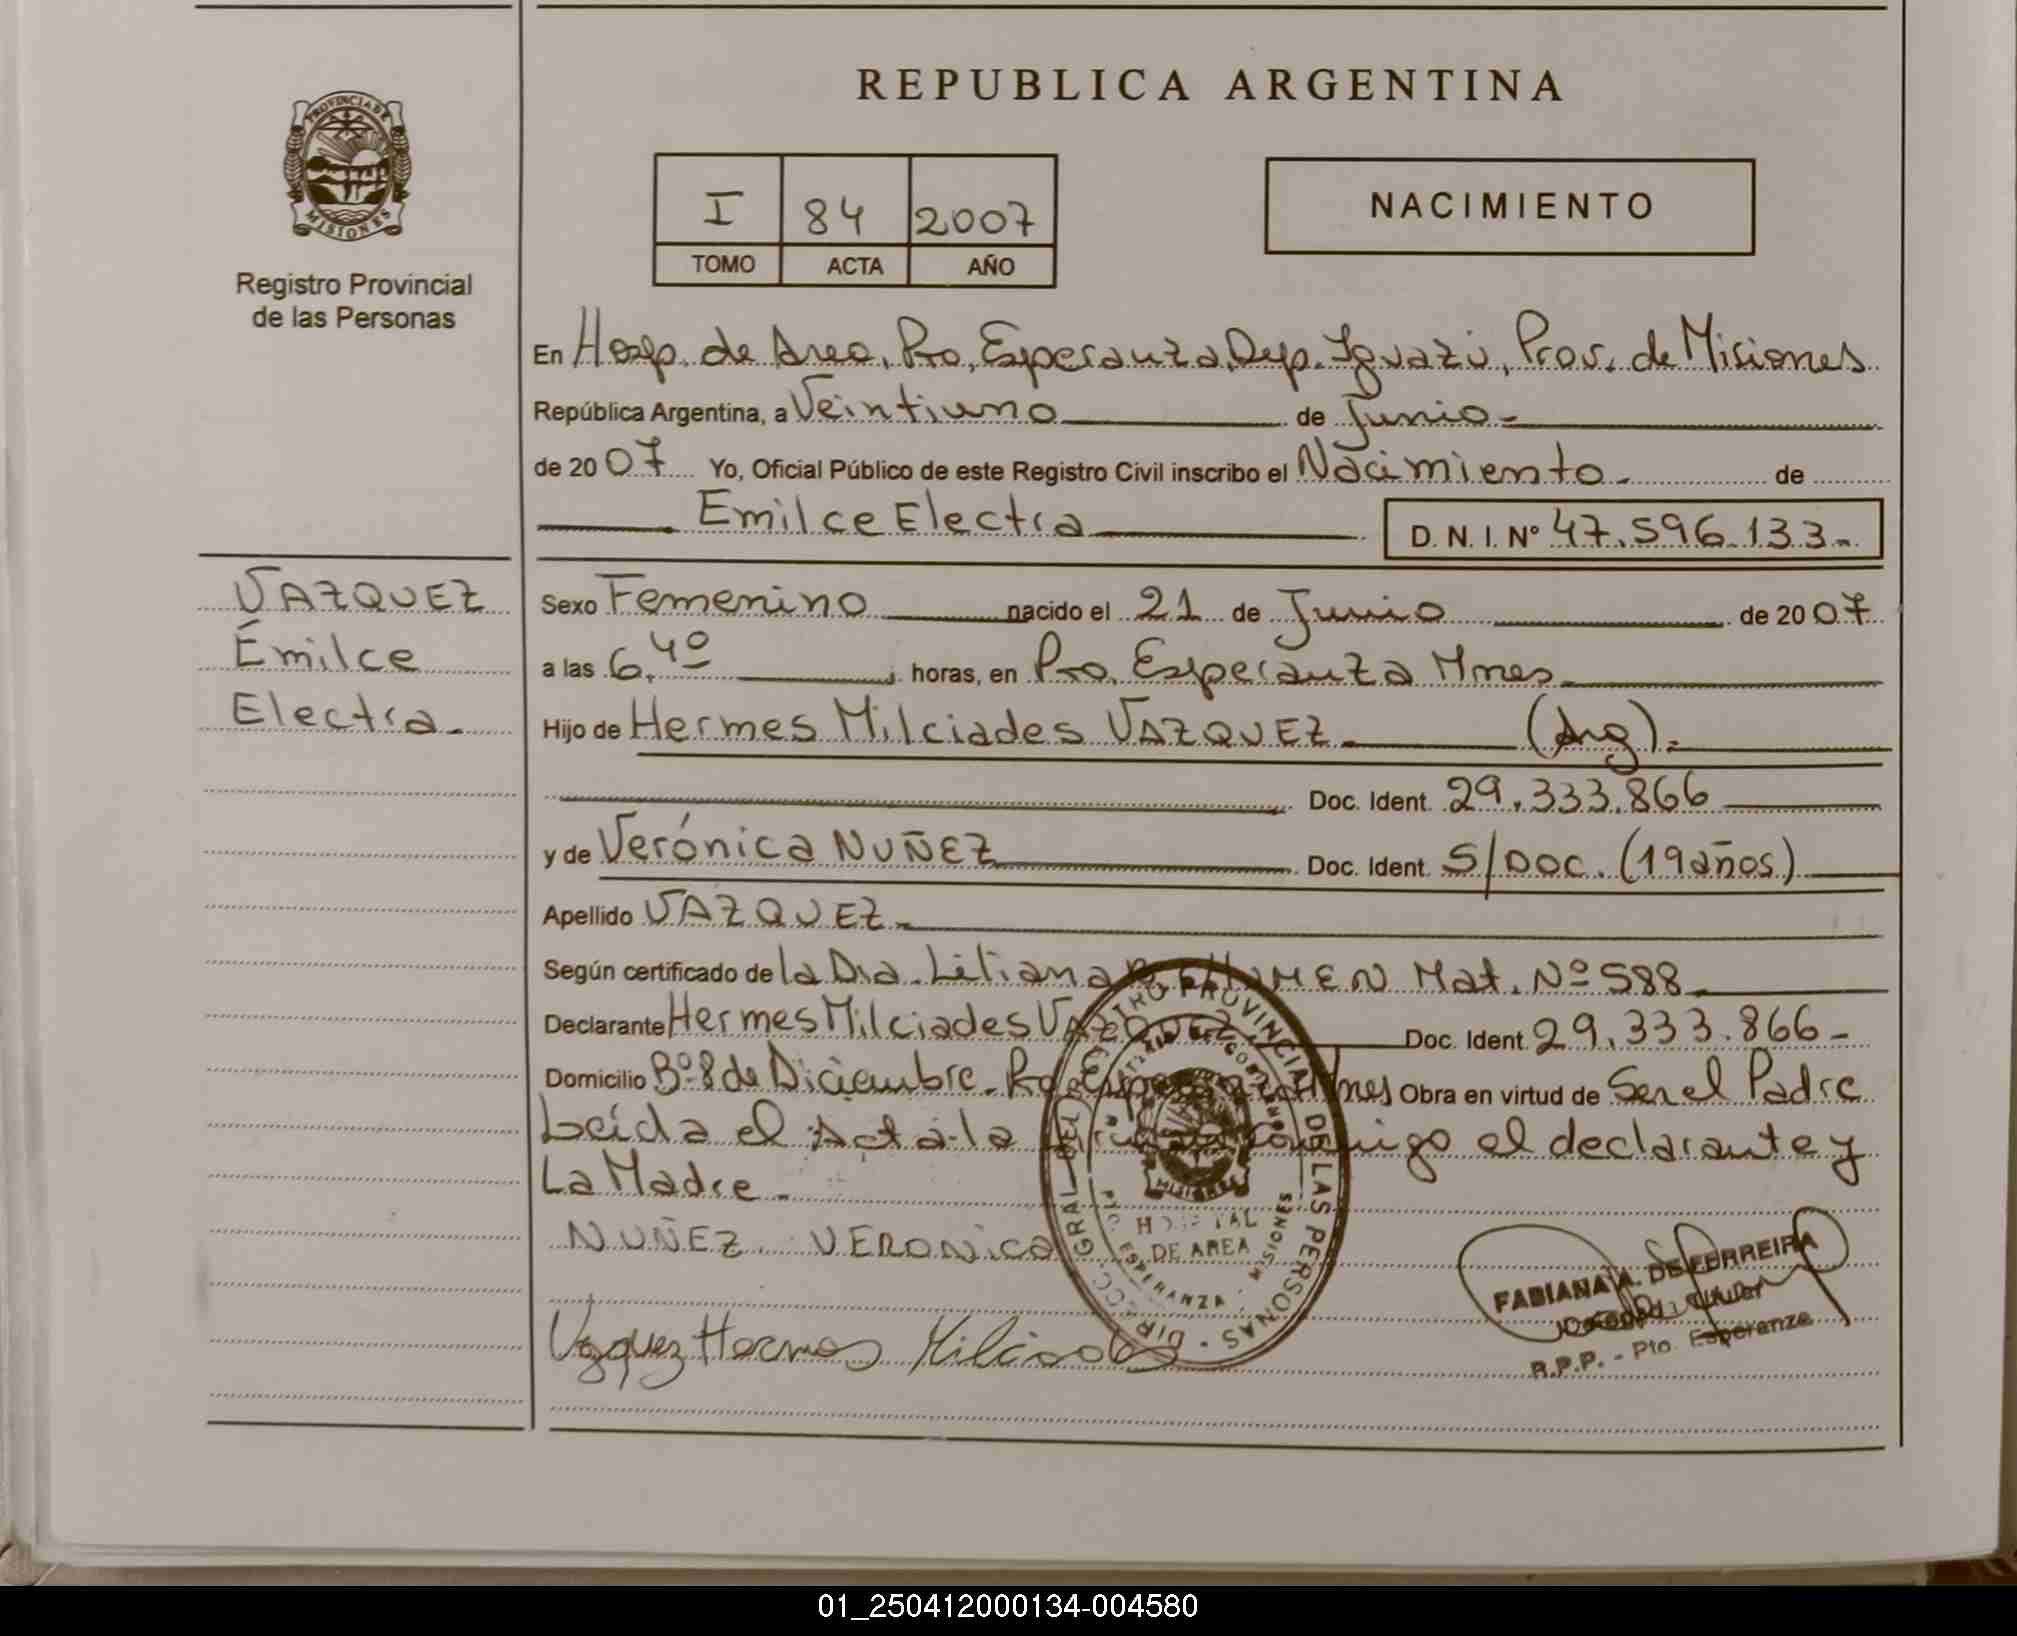 REPUBLICA ARGENTINA
PROVINCIA DE
MISIONES
Registro Provincial
de las Personas
I 84 2007
TOMO ACTA AÑO
NACIMIENTO
En Hosp. de Area, Pto, Esperanza, Dep. Iguazú, Prov. de Misiones
República Argentina, a Veintiuno de Junio
de 2007 Yo, Oficial Público de este Registro Civil inscribo el Nacimiento de
Emilce Electra D. N. I. Nº 47.596.133
VAZQUEZ
Émilce
Electra
Sexo Femenino nacido el 21 de Junio de 2007
a las 6.40 horas, en Pto. Esperanza Mnes
Hijo de Hermes Milciades VAZQUEZ (Arg)
Doc. Ident. 29.333.866
y de Verónica NUÑEZ Doc. Ident. S/DOC. (19 años)
Apellido VAZQUEZ
Según certificado de la Dra. Liliana Mat. Nº 588
Declarante Hermes Milciades VAZQUEZ Doc. Ident. 29.333.866
Domicilio Bº 8 de Diciembre. Pto Esperanza Mnes Obra en virtud de Ser el Padre
Leída el Acta la conmigo el declarante y
La Madre
NUÑEZ VERONICA
Vazquez Hermes Milciades
DIRECC. GRAL. DEL REGISTRO PROVINCIAL DE LAS PERSONAS
MISIONES
HOSPITAL
DE AREA
ESPERANZA - MISIONES
FABIANA A. DE FERREIRA
R.P.P. - Pto. Esperanza
01_250412000134-004580